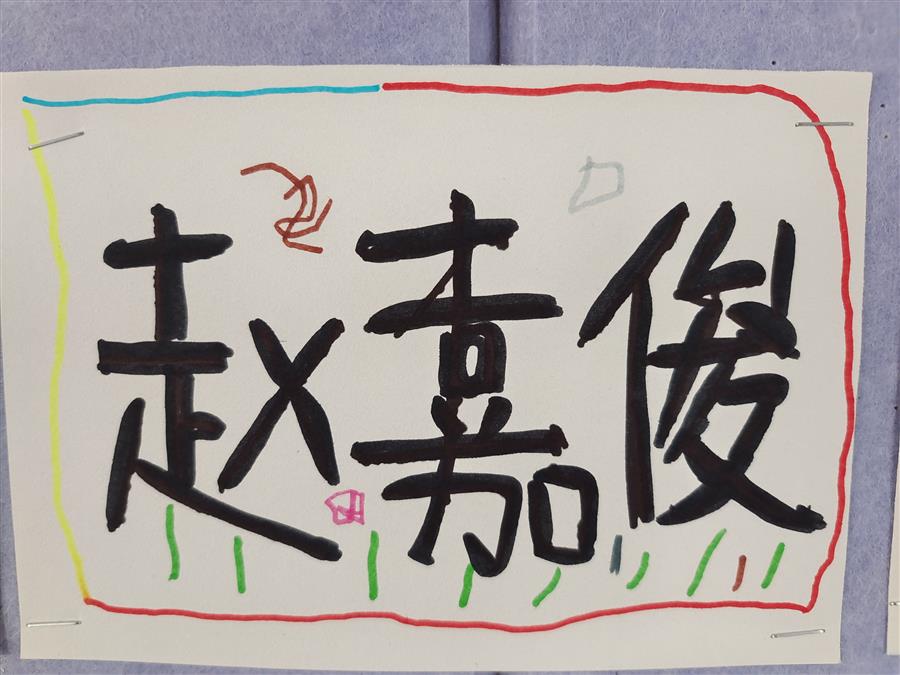 赵嘉俊